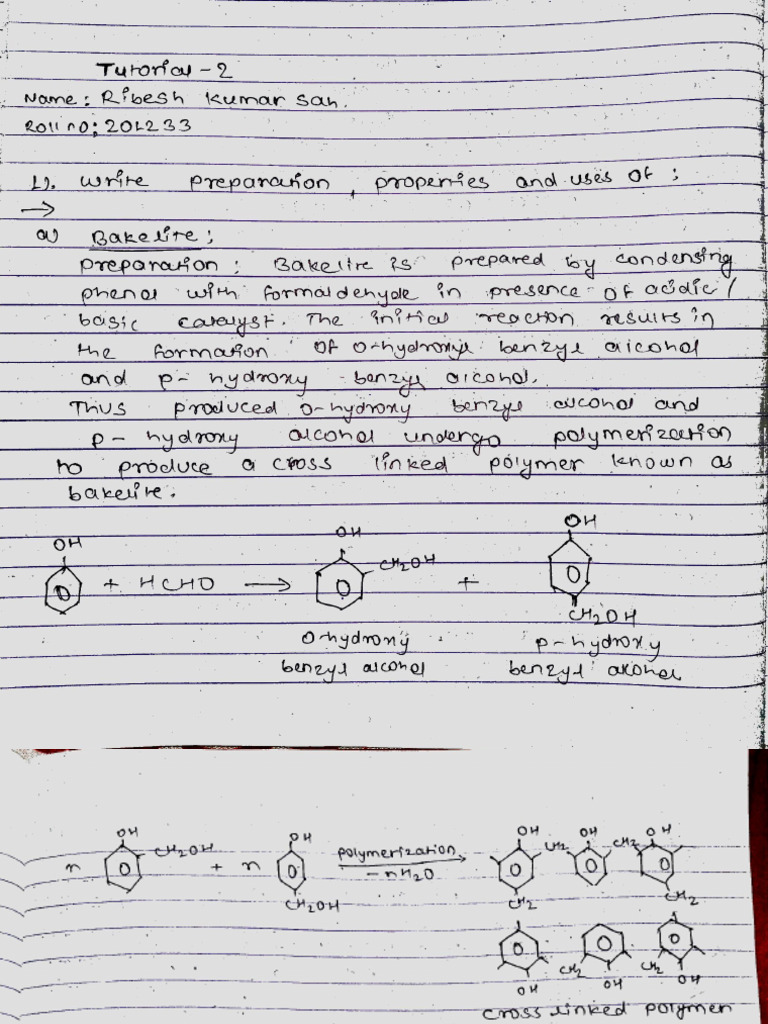 Tutorial - 2
Name: Ribesh Kumar Sah.
Roll no: 201233
1). Write preparation, properties and uses of:
→
a) Bakelite:
preparation: Bakelite is prepared by condensing
phenol with formaldehyde in presence of acidic/
basic catalyst. The initial reaction results in
the formation of o-hydroxy benzyl alcohol
and p-hydroxy benzyl alcohol.
Thus produced o-hydroxy benzyl alcohol and
p-hydroxy alcohol undergo polymerization
to produce a cross linked polymer known as
bakelite.
OH OH OH
+ HCHO → CH2OH +
CH2OH
o-hydroxy p-hydroxy
benzyl alcohol benzyl alcohol
OH OH OH OH OH
n CH2OH + n polymerization CH2 CH2
-nH2O
CH2OH CH2 CH2
CH2 CH2
OH OH OH
cross linked polymer